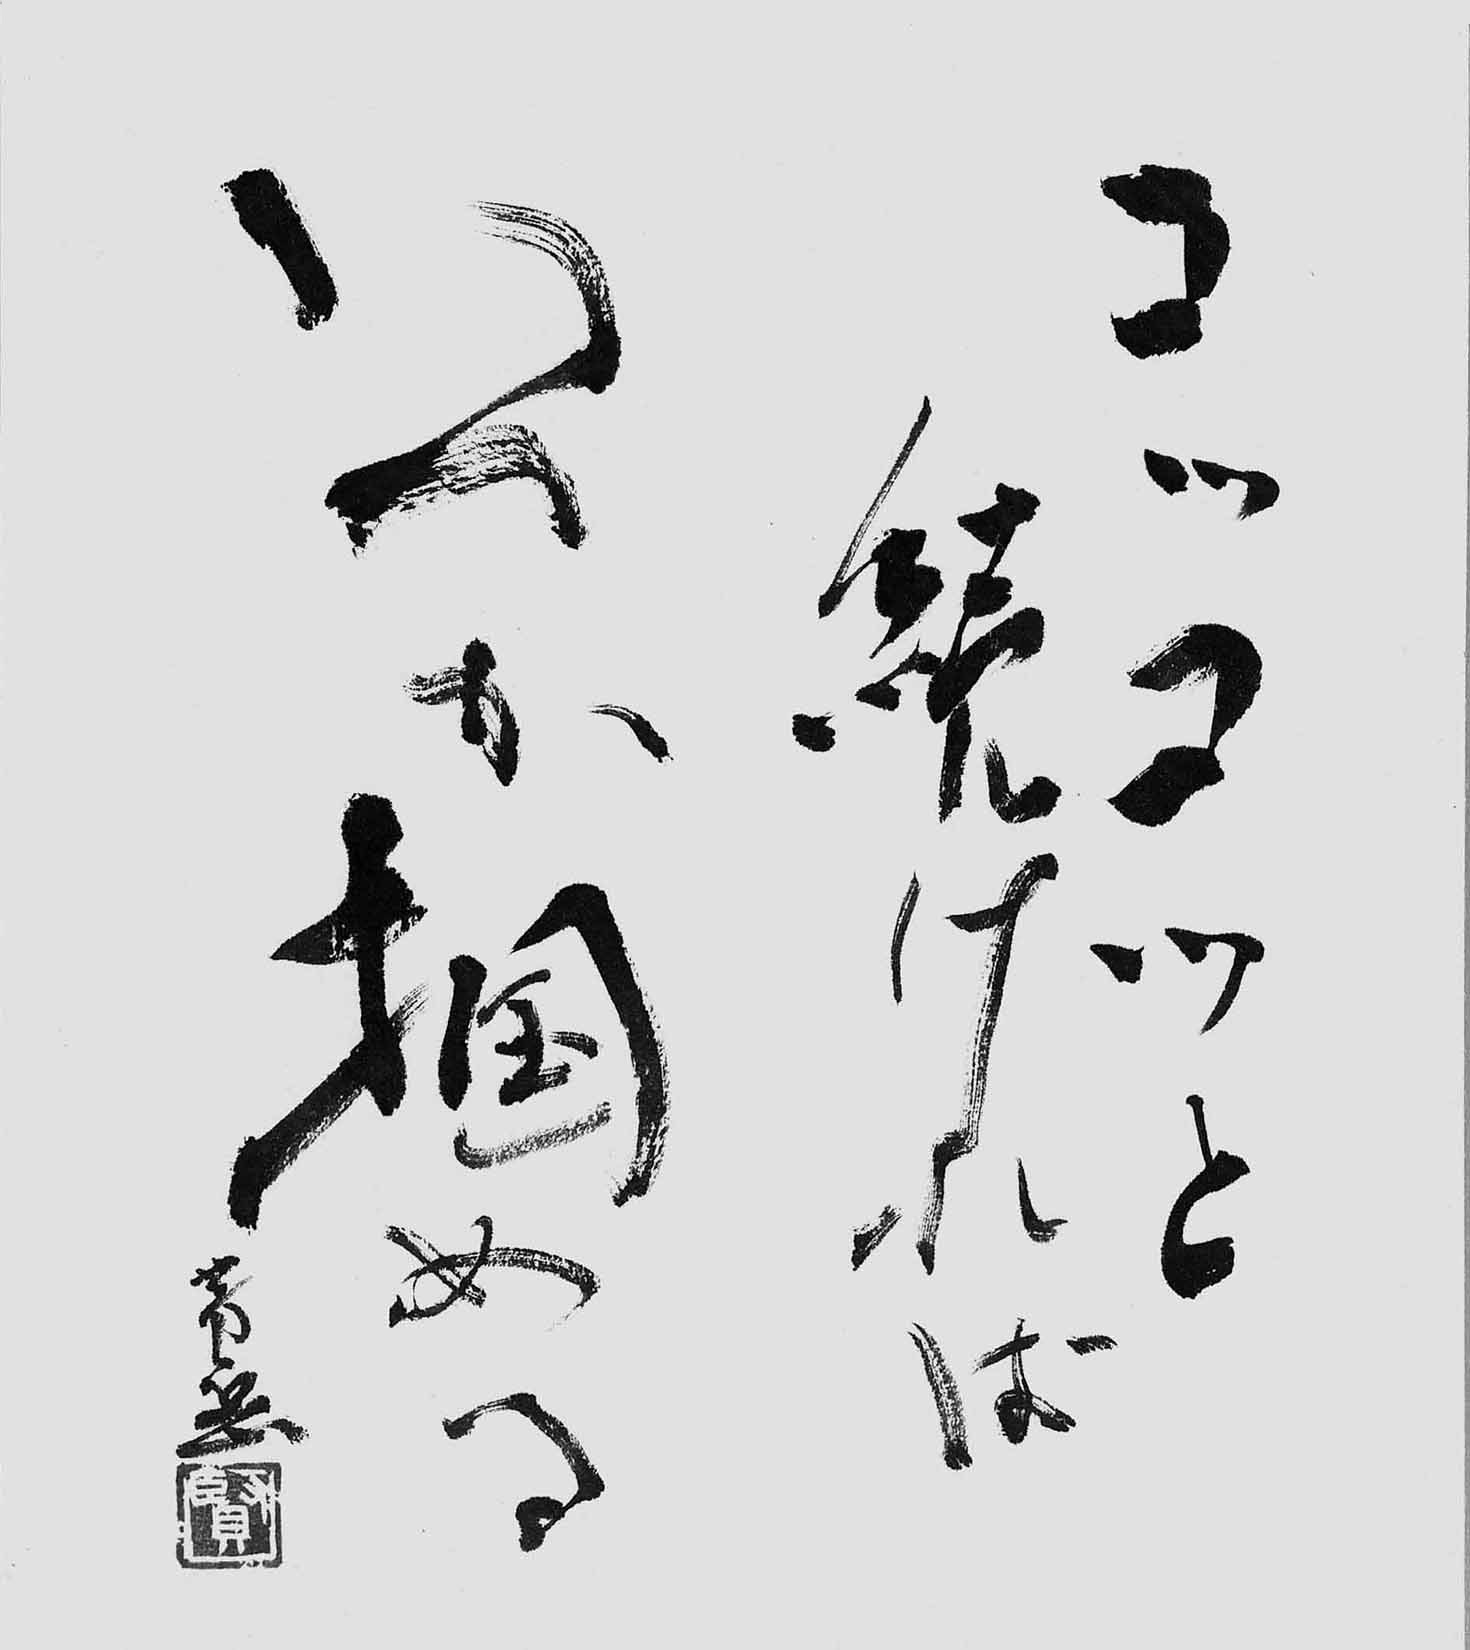 コツコツと
続ければ
か掴める